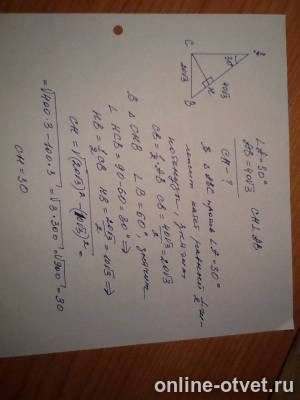 C
A
30°
H
20√3
40√3
B
∠A = 30°
AB = 40√3 CH ⊥ AB
CH - ?
В Δ ABC против ∠A = 30°
лежит катет равный 1/2 ги-
потенузы, значит
CB = 1/2 · AB CB = 40√3/2 = 20√3
В Δ CHB ∠B = 60°, значит
∠ HCB = 90 - 60 = 30° ⇒
HB = 1/2 CB HB = 20√3/2 = 10√3 ⇒
CH = √(20√3)² - (10√3)² =
= √400·3 - 100·3 = √3·300 = √900 = 30
CH = 30
online-otvet.ru